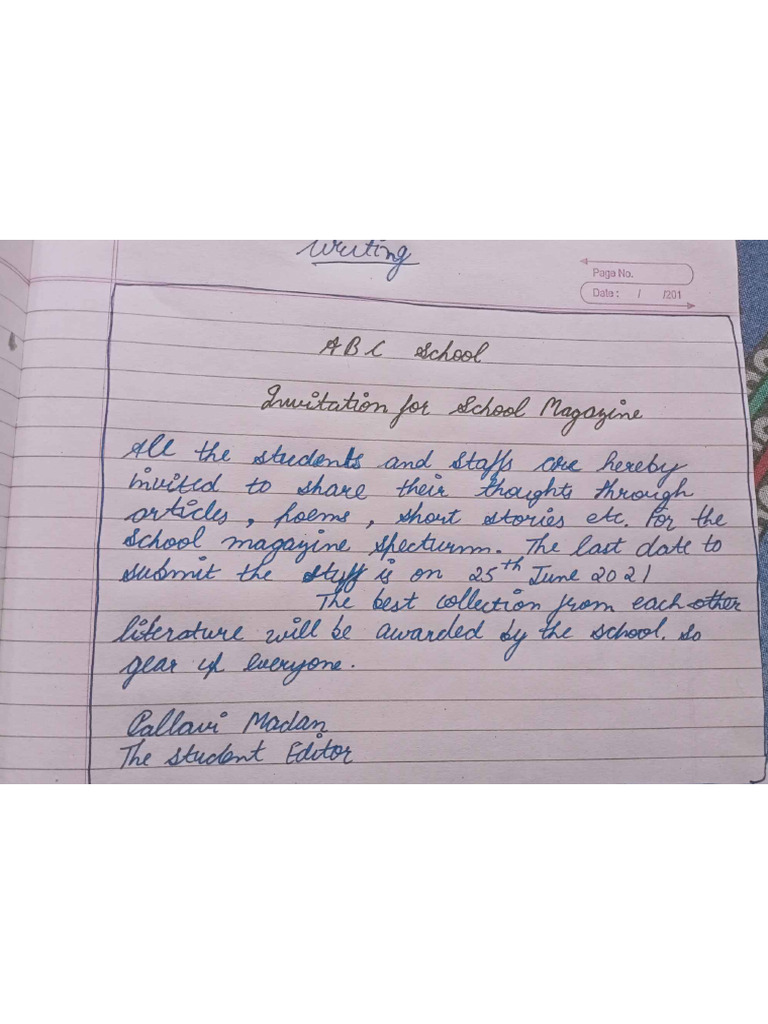 Writing
Page No.
Date : / /201
ABC School
Invitation for School Magazine
All the students and staffs are hereby
invited to share their thoughts through
articles, poems, short stories etc. for the
School magazine specturm. The last date to
submit the stuff is on 25th June 2021
The best collection from each other
literature will be awarded by the school. So
gear up everyone.
Pallavi Madan
The Student Editor